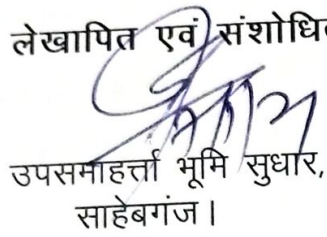 लेखापित एवं संशोधित
उपसमाहर्त्ता भूमि सुधार,
साहेबगंज।